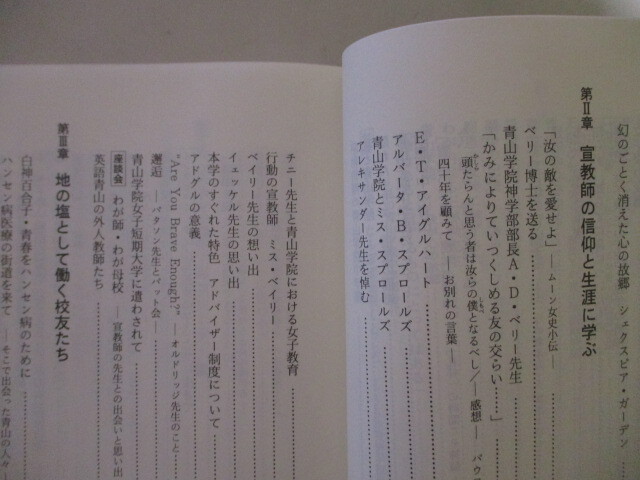 幻のごとく消えた心の故郷　シェクスピア・ガーデン
第Ⅱ章　宣教師の信仰と生涯に学ぶ
「汝の敵を愛せよ」―ムーン女史小伝―
ベリー博士を送る
青山学院神学部部長A・D・ベリー先生
「かみによりていつくしめる友の交らい……」
頭たらんと思う者は汝らの僕となるべし／―感想― バウ
かしら　しもべ
四十年を顧みて　―お別れの言葉―
E・T・アイグルハート
アルバータ・B・スプロールズ
青山学院とミス・スプロールズ
アレキサンダー先生を悼む
チニー先生と青山学院における女子教育
行動の宣教師　ミス・ベイリー
ベイリー先生の想い出
イェッケル先生の思い出
本学のすぐれた特色　アドバイザー制度について
アドグルの意義
"Are You Brave Enough?" ―オルドリッジ先生のこと―
邂逅　―パタソン先生とパット会―
青山学院女子短期大学に遣わされて
座談会　わが師・わが母校　―宣教師の先生との出会いと思い出
英語青山の外人教師たち
第Ⅲ章　地の塩として働く校友たち
白神百合子・青春をハンセン病のために
ハンセン病医療の街道を来て　―そこで出会った青山の人々―